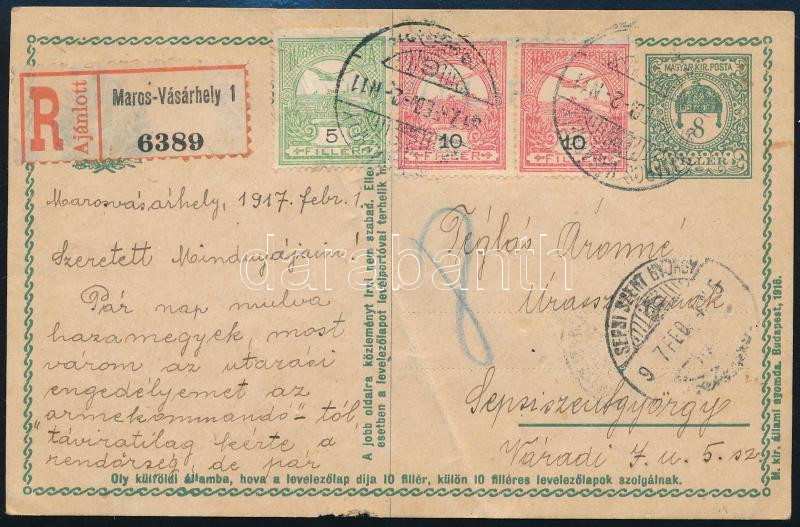 R
Ajánlott
Maros-Vásárhely 1
6389
MAGYAR KIR. POSTA
5
FILLÉR
10
FILLÉR
10
FILLÉR
MAGYAR KIR. POSTA
8
FILLÉR
Marosvásárhely, 1917. febr. 1.
Szeretett
Pár nap mulva
hazamegyek, most
várom az utazási
engedélyemet az
"armekommandó"-tól,
táviratilag kérte a
rendőrség, de pár
A jobb oldalra közleményt írni nem szabad.
esetben a levelezőlapot levélportóval terhelik
Téglás Áronné
Úrasszonynak
Sepsiszentgyörgy
Váradi J. u. 5. sz.
8
SEPSI SZENT GYÖRGY
Oly külföldi államba, hova a levelezőlap díja 10 fillér, külön 10 filléres levelezőlapok szolgálnak.
M. kir. állami nyomda. Budapest, 1916.
darabanth